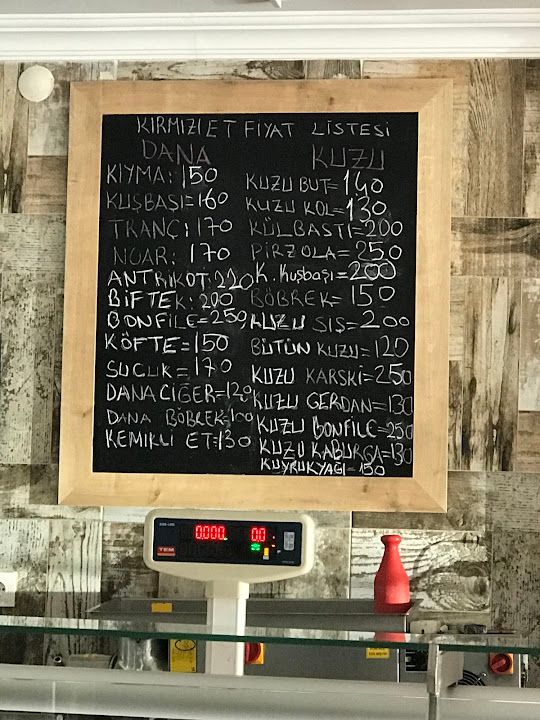 KIRMIZI ET FİYAT LİSTESİ
DANA
KIYMA: 150
KUŞBAŞI=160
TRANÇ: 170
NUAR: 170
ANTRİKOT: 220
BİFTEK: 200
BONFİLE=250
KÖFTE=150
SUCUK=170
DANA CİĞER=120
DANA BÖBREK:100
KEMİKLİ ET:130
KUZU
KUZU BUT=140
KUZU KOL=130
KÜLBASTI=200
PİRZOLA=250
K. KUŞBAŞI=200
BÖBREK=150
KUZU SİS=200
BÜTÜN KUZU=120
KUZU KARSKİ=250
KUZU GERDAN=130
KUZU BONFİLE=250
KUZU KABURGA=130
KUYRUKYAĞI=150
0.000 0.0
TEM